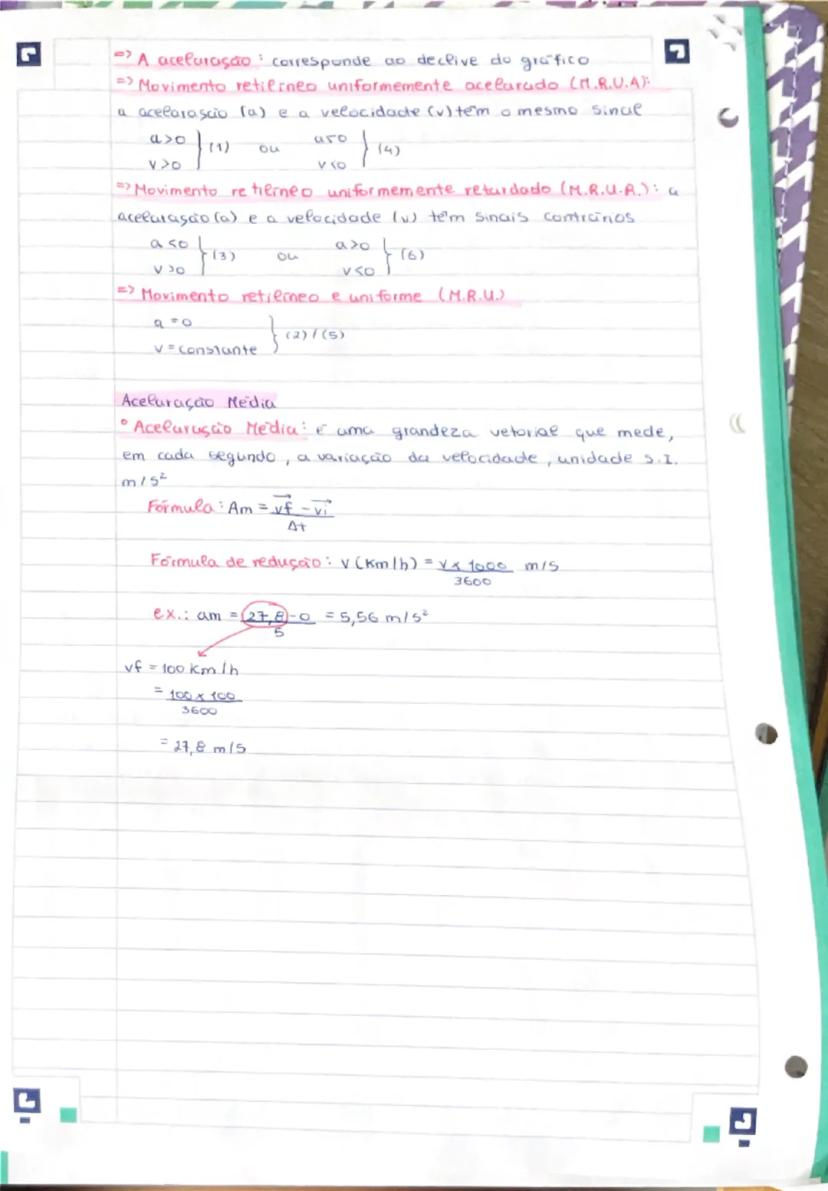 => A aceleração: corresponde ao declive do gráfico
=> Movimento retilíneo uniformemente acelerado (M.R.U.A):
a aceleração (a) e a velocidade (v) têm o mesmo sinal
a>0 } (1) ou a<0 } (4)
v>0 v<0
=> Movimento retilíneo uniformemente retardado (M.R.U.R.): a
aceleração (a) e a velocidade (v) têm sinais contrários
a<0 } (3) ou a>0 } (6)
v>0 v<0
=> Movimento retilíneo e uniforme (M.R.U.)
a = 0 } (2) / (5)
v = constante
Aceleração Média
° Aceleração Média: é uma grandeza vetorial que mede,
em cada segundo, a variação da velocidade, unidade S.I.
m/s²
Fórmula: Am = vf - vi
Δt
Fórmula de redução: v (Km/h) = v x 1000 m/s
3600
ex.: am = 27,8 - 0 = 5,56 m/s²
5
vf = 100 km/h
= 100 x 100
3600
= 27,8 m/s